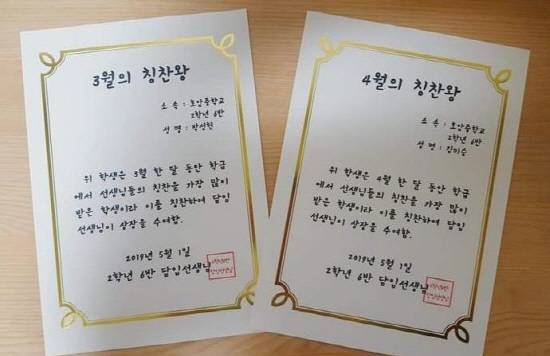 3월의 칭찬왕
소 속 : 호암중학교
2학년 6반
성 명 : 박성현
위 학생은 3월 한 달 동안 학급
에서 선생님들의 칭찬을 가장 많이
받은 학생이라 이를 칭찬하여 담임
선생님이 상장을 수여함.
2019년 5월 1일
2학년 6반 담임선생님
4월의 칭찬왕
소 속 : 호암중학교
2학년 6반
성 명 : 김미승
위 학생은 4월 한 달 동안 학급
에서 선생님들의 칭찬을 가장 많이
받은 학생이라 이를 칭찬하여 담임
선생님이 상장을 수여함.
2019년 5월 1일
2학년 6반 담임선생님